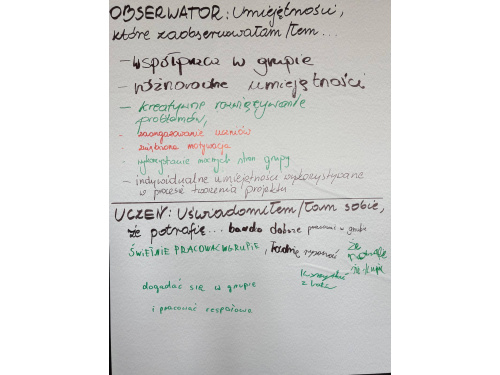 OBSERWATOR: Umiejętności,
które zaobserwowałam/łem...
- współpraca w grupie
- różnorodne umiejętności
- kreatywne rozwiązywanie
problemów,
- zaangażowanie uczniów
- zwiększona motywacja
- wykorzystanie mocnych stron grupy
- indywidualne umiejętności wykorzystywane
w procesie tworzenia projektu
UCZEŃ: Uświadomiłem/łam sobie,
że potrafię... bardo dobrze pracować w grupie
ŚWIETNIE PRACOWAĆ W GRUPIE, ładnie rysować
że
potrafię
korzystać
z
dogadać się w grupie
i pracować zespołowo